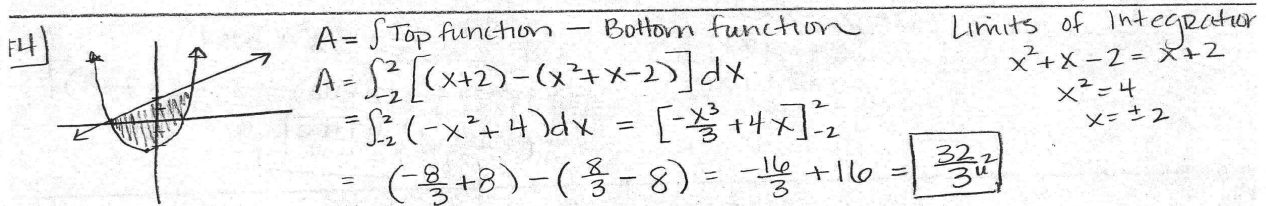 #4]
A = ∫ Top function – Bottom function
A = ∫₋₂² [(x+2) – (x²+x–2)] dx
= ∫₋₂² (–x²+4) dx = [–x³/3 + 4x]₋₂²
= (–8/3 + 8) – (8/3 – 8) = –16/3 + 16 = 32/3 u²
Limits of Integration
x²+x–2 = x+2
x² = 4
x = ±2